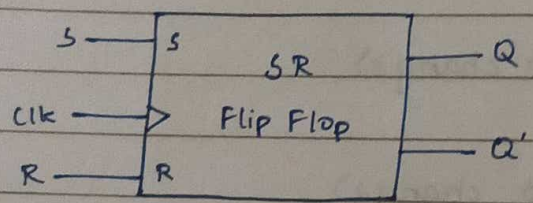 S S SR Q
Clk Flip Flop
R R Q'